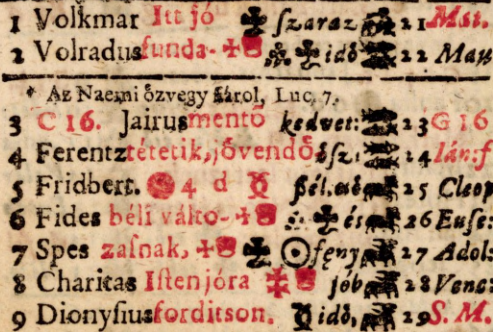 1 Volkmar Itt jó ſzaraz 21 Mat.
2 Volradus funda- idő 22 Mau
* Az Naemi özvegy fiárol, Luc. 7.
3 C 16. Jairus mentö kedvet: 23 G 16
4 Ferentz tétetik, jövendö őſz. 24 lán: f
5 Fridbert. 4 d ſél. 25 Cleop
6 Fides béli válto- és 26 Euſe:
7 Spes zaſnak, fény 27 Adol:
8 Charitas Iſten jóra jób 28 Venc:
9 Dionyſius forditson. idő, 29 S. M.